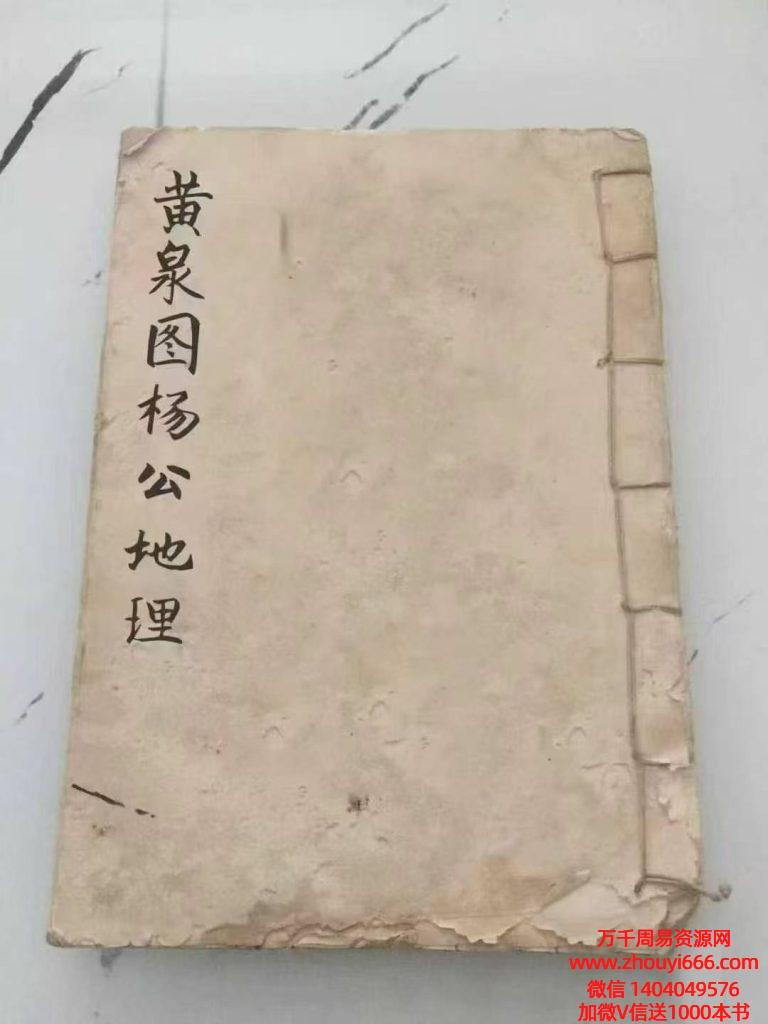 黄泉图杨公地理
万千周易资源网
www.zhouyi666.com
微信 1404049576
加微V信送1000本书